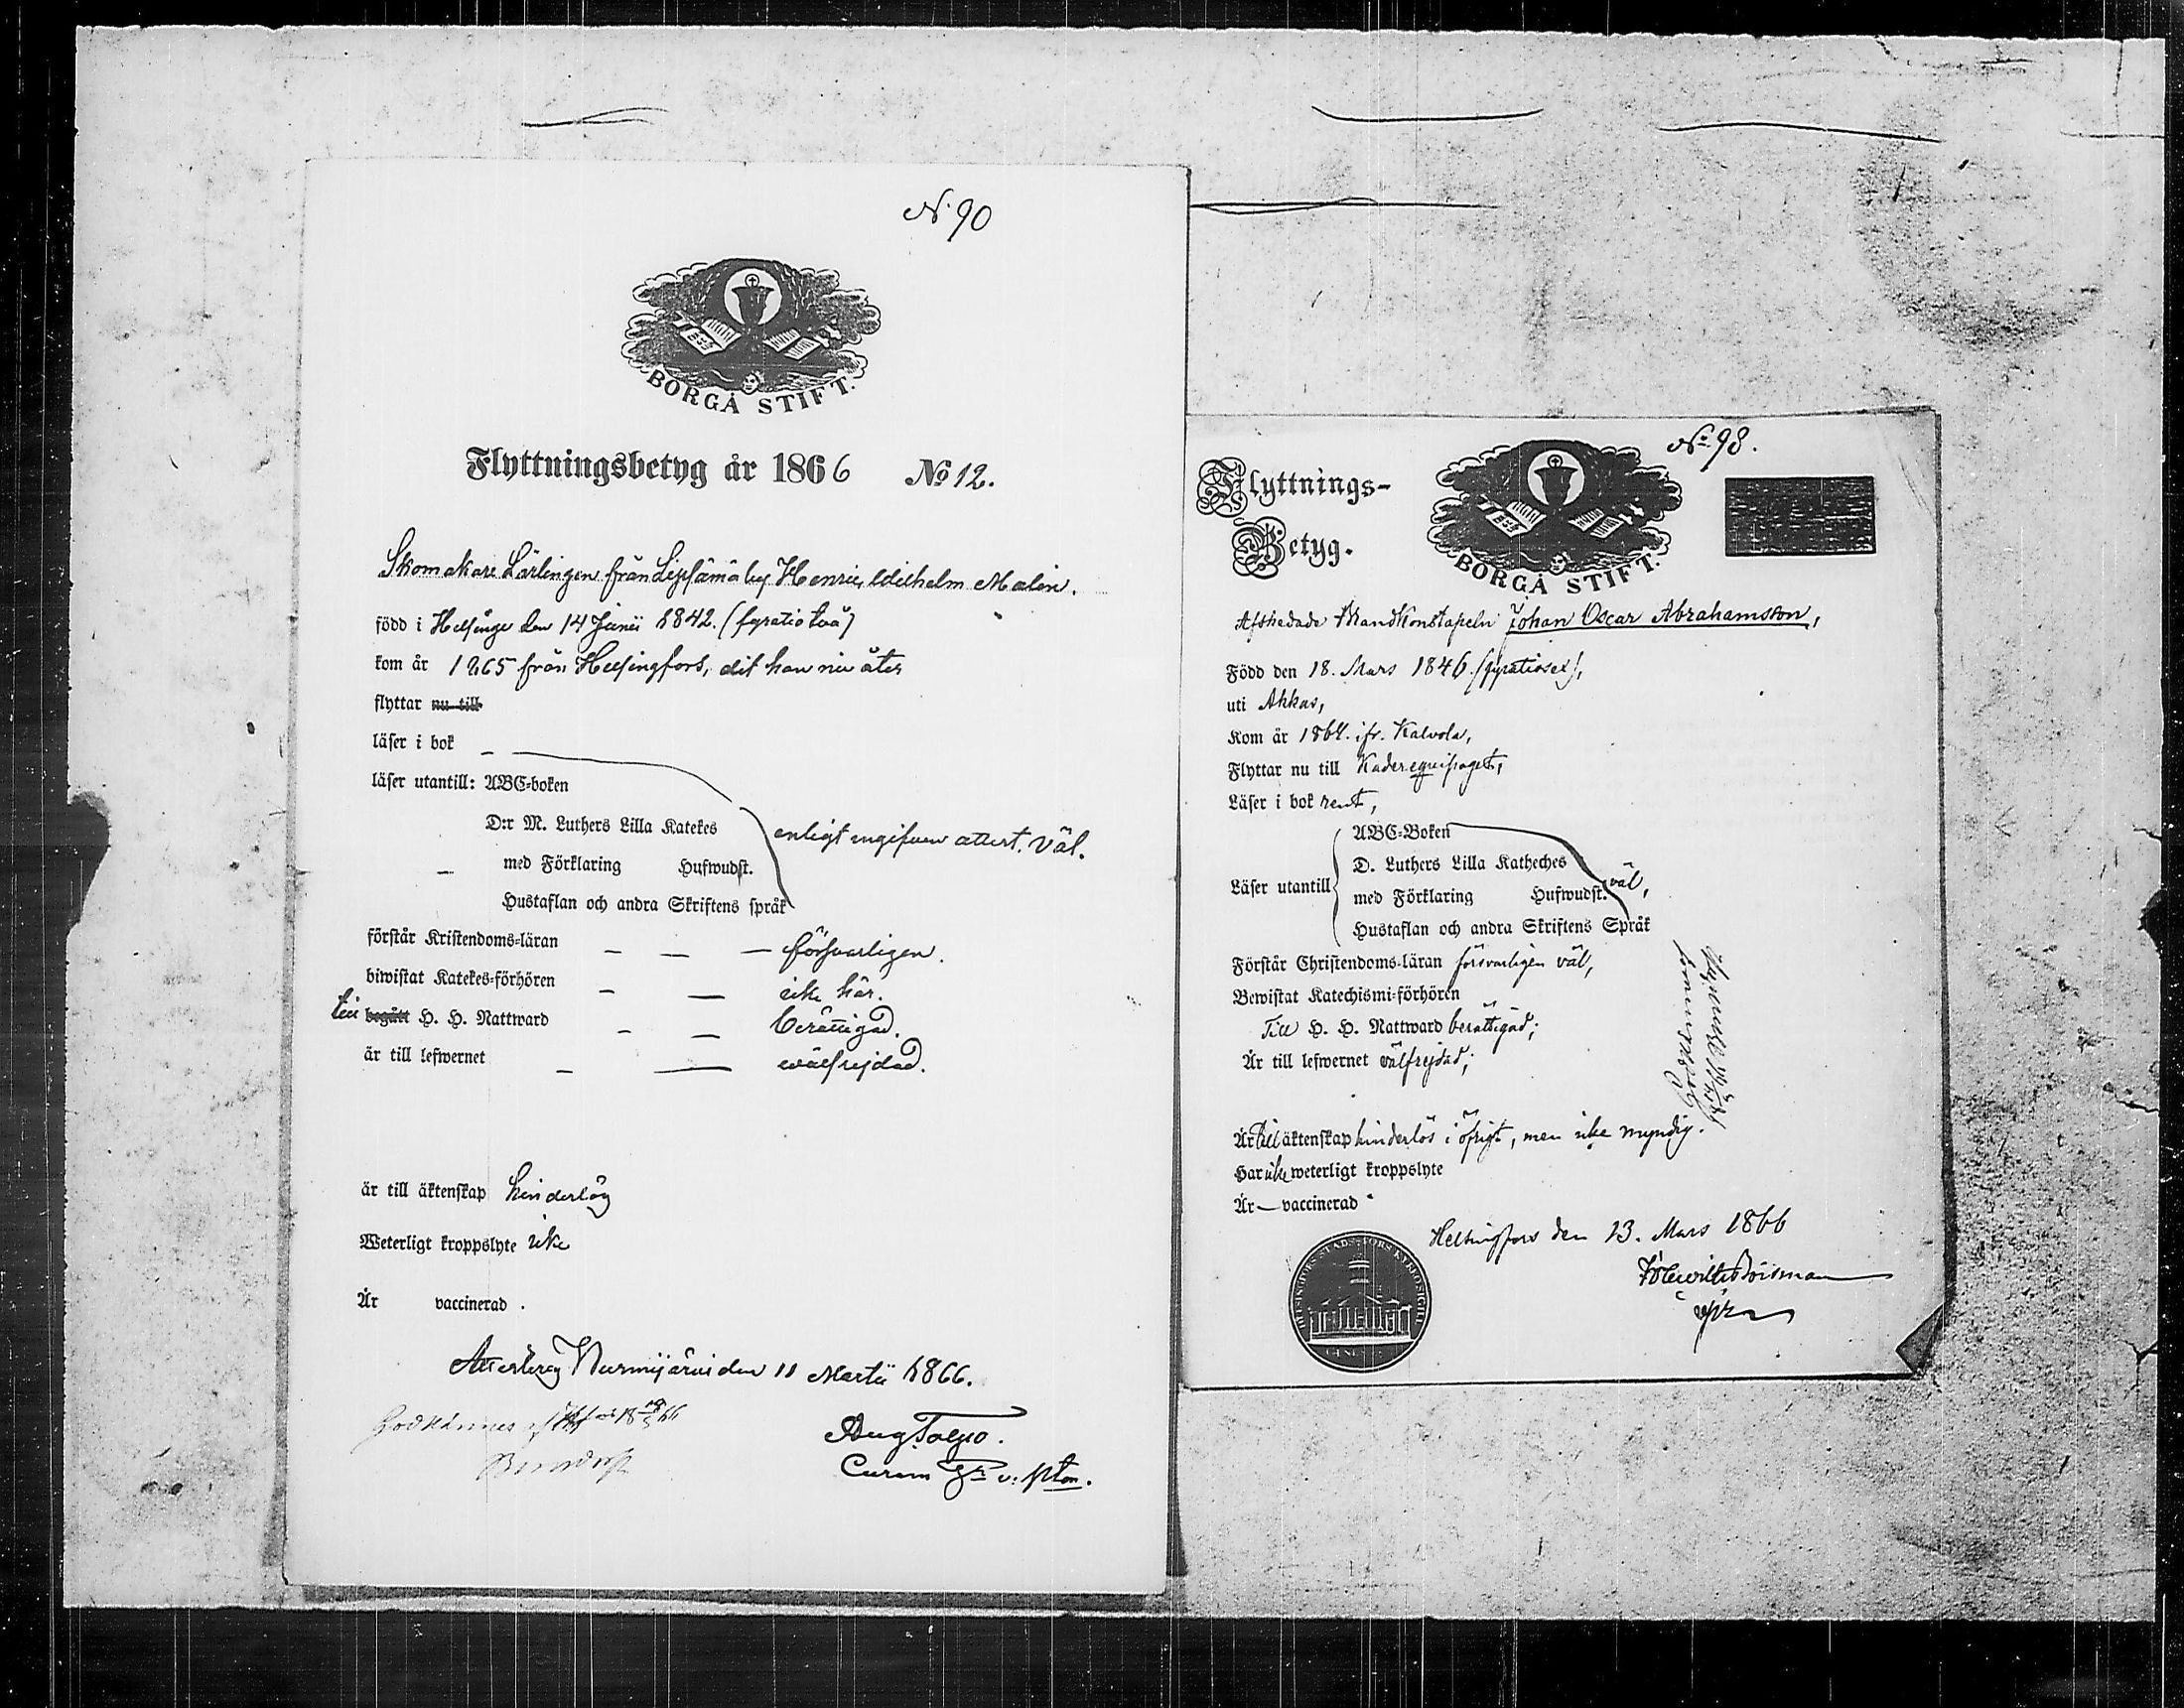 N. 90
BORGÅ STIFT.
Flyttningsbetyg år 1866 No 12.
Skomakare Lärlingen från Lepsämä by Henric Wilhelm Malin.
född i Helsinge den 14 Junii 1842. (fyratiotvå)
kom år 1865 från Helsingfors, dit han nu åter
flyttar nu till
läser i bok
läser utantill: ABC-boken
D:r M. Luthers Lilla Katekes
enligt ingifven attest. väl.
med Förklaring Hufwudst.
Hustaflan och andra Skriftens språk
förstår Kristendoms-läran — — — försvarligen.
biwistat Katekes-förhören — — icke här.
till begått H. H. Nattward — — berättigad.
är till lefwernet — — wälfrejdad.
är till äktenskap hinderlös
Weterligt kroppslyte icke
Är vaccinerad.
Nurmijärvi den 11 Martii 1866.
Godkännes
Aug.
Curam v. pston.
No 98.
Flyttnings-
Betyg.
BORGÅ STIFT.
Afskedade Brandkonstapeln Johan Oscar Abrahamsson,
Född den 18. Mars 1846. (fyratiosex),
uti Akkas,
Kom år 1864. ifr. Kalvola,
Flyttar nu till Kader-equipaget,
Läser i bok rent,
Läser utantill
ABC-Boken
D. Luthers Lilla Katheches
med Förklaring Hufwudst. väl,
Hustaflan och andra Skriftens Språk
Förstår Christendoms-läran försvarligen väl,
Bewistat Katechismi-förhören
Till H. H. Nattward berättigad;
Är till lefwernet välfrejdad;
Är till äktenskap hinderlös i öfrigt, men icke myndig.
Har icke weterligt kroppslyte
Är — vaccinerad
Helsingfors den 13. Mars 1866
Godkännes